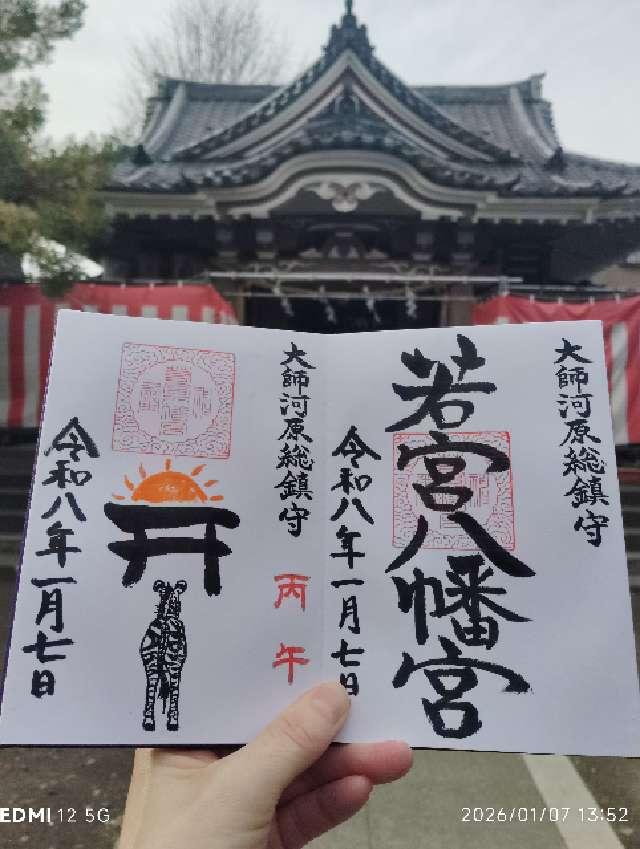 大師河原総鎮守
若宮八幡宮
令和八年一月七日
大師河原総鎮守
丙午
令和八年一月七日
EDMI 12 5G
2026/01/07 13:52